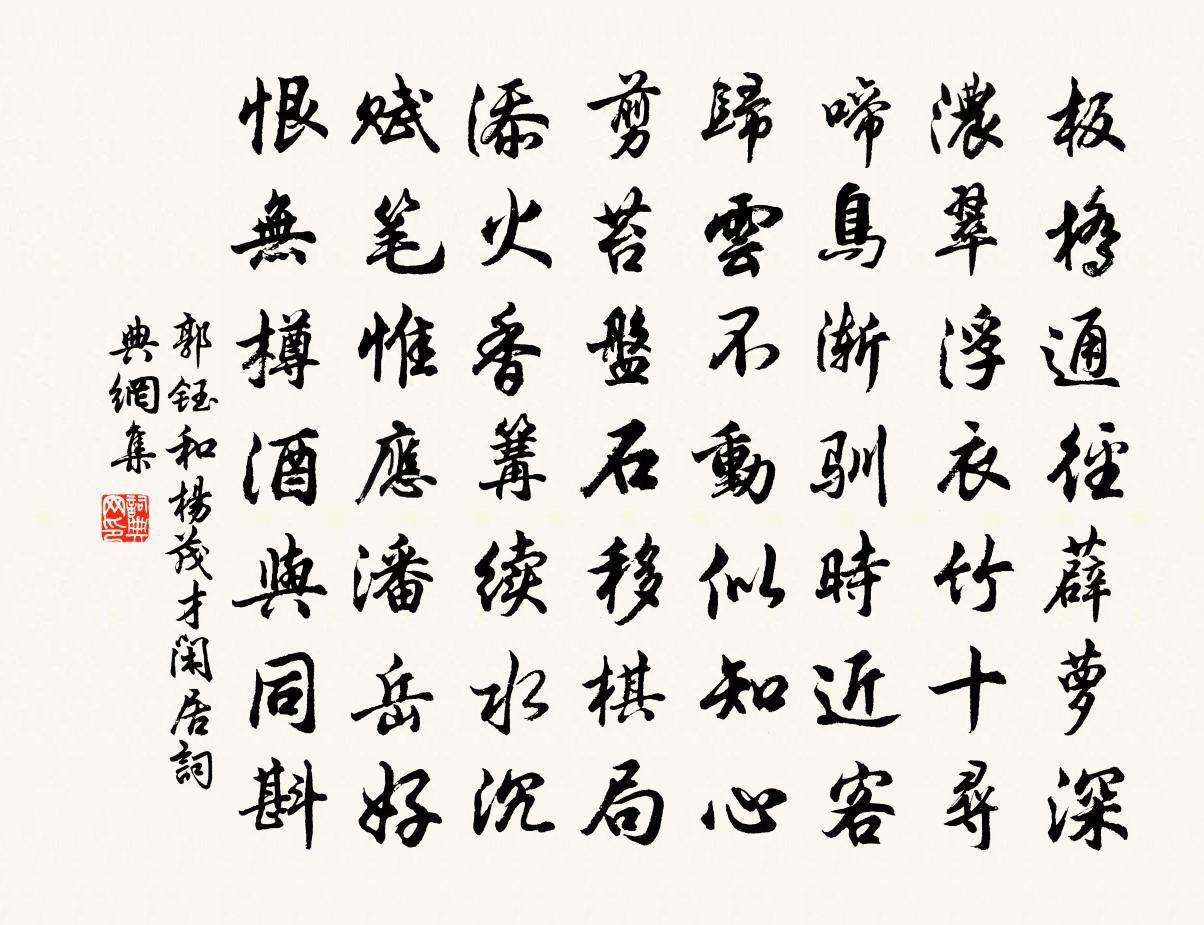 板橋通徑薜萝深
濃翠浮衣竹十尋
啼鳥渐驯時近客
歸雲不動似知心
剪苔盤石移棋局
添火香篝续水沉
赋笔惟應潘岳好
恨無樽酒與同斟
郭钰和楊茂才閑居詞
典網集
詞典
网印